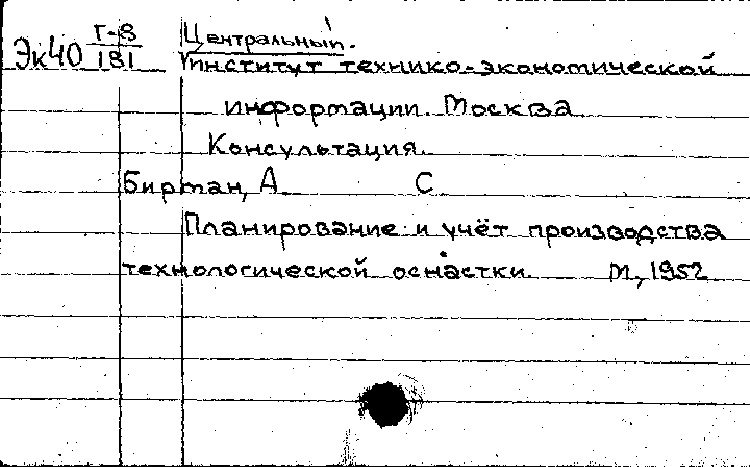 Эк40 Г-8 Центральный.
181 институт технико-экономической
информации. Москва
Консультация.
Бирман, А С
Планирование и учёт производства
технологической оснастки. М, 1952